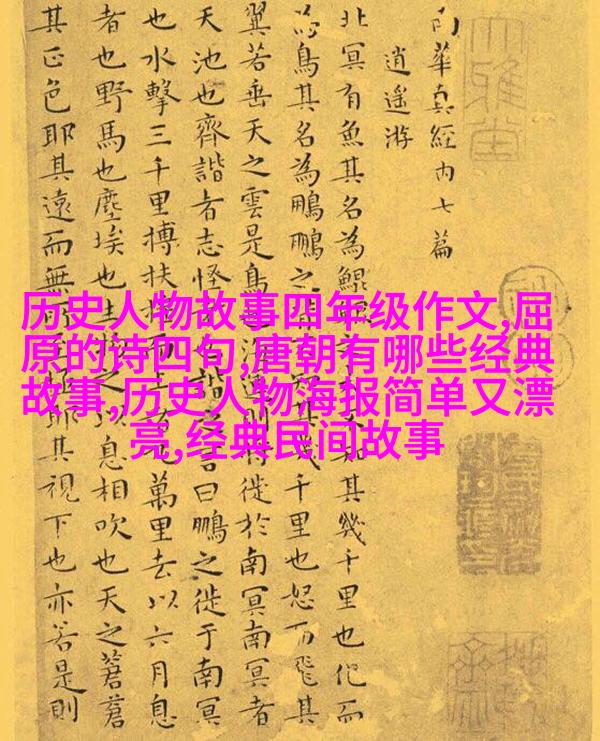 南華真經內七篇
逍遙游
北冥有魚其名為鯤其幾千里也化而
為鳥其名為鵬鵬之其幾千里也怒而飛其
翼若垂天之雲是鳥也海運則將徙於南冥南冥者
天池也齊諧者志怪者諧之言曰鵬之徙于南冥
也水擊三千里摶扶而上萬里去以六月息
者也野馬也塵埃也生之以息相吹也天之蒼蒼
其正色耶其遠而無所至極耶其視下也亦若是則
大雅堂
历史人物故事四年级作文,屈
原的诗四句,唐朝有哪些经典
故事,历史人物海报简单又漂
亮,经典民间故事